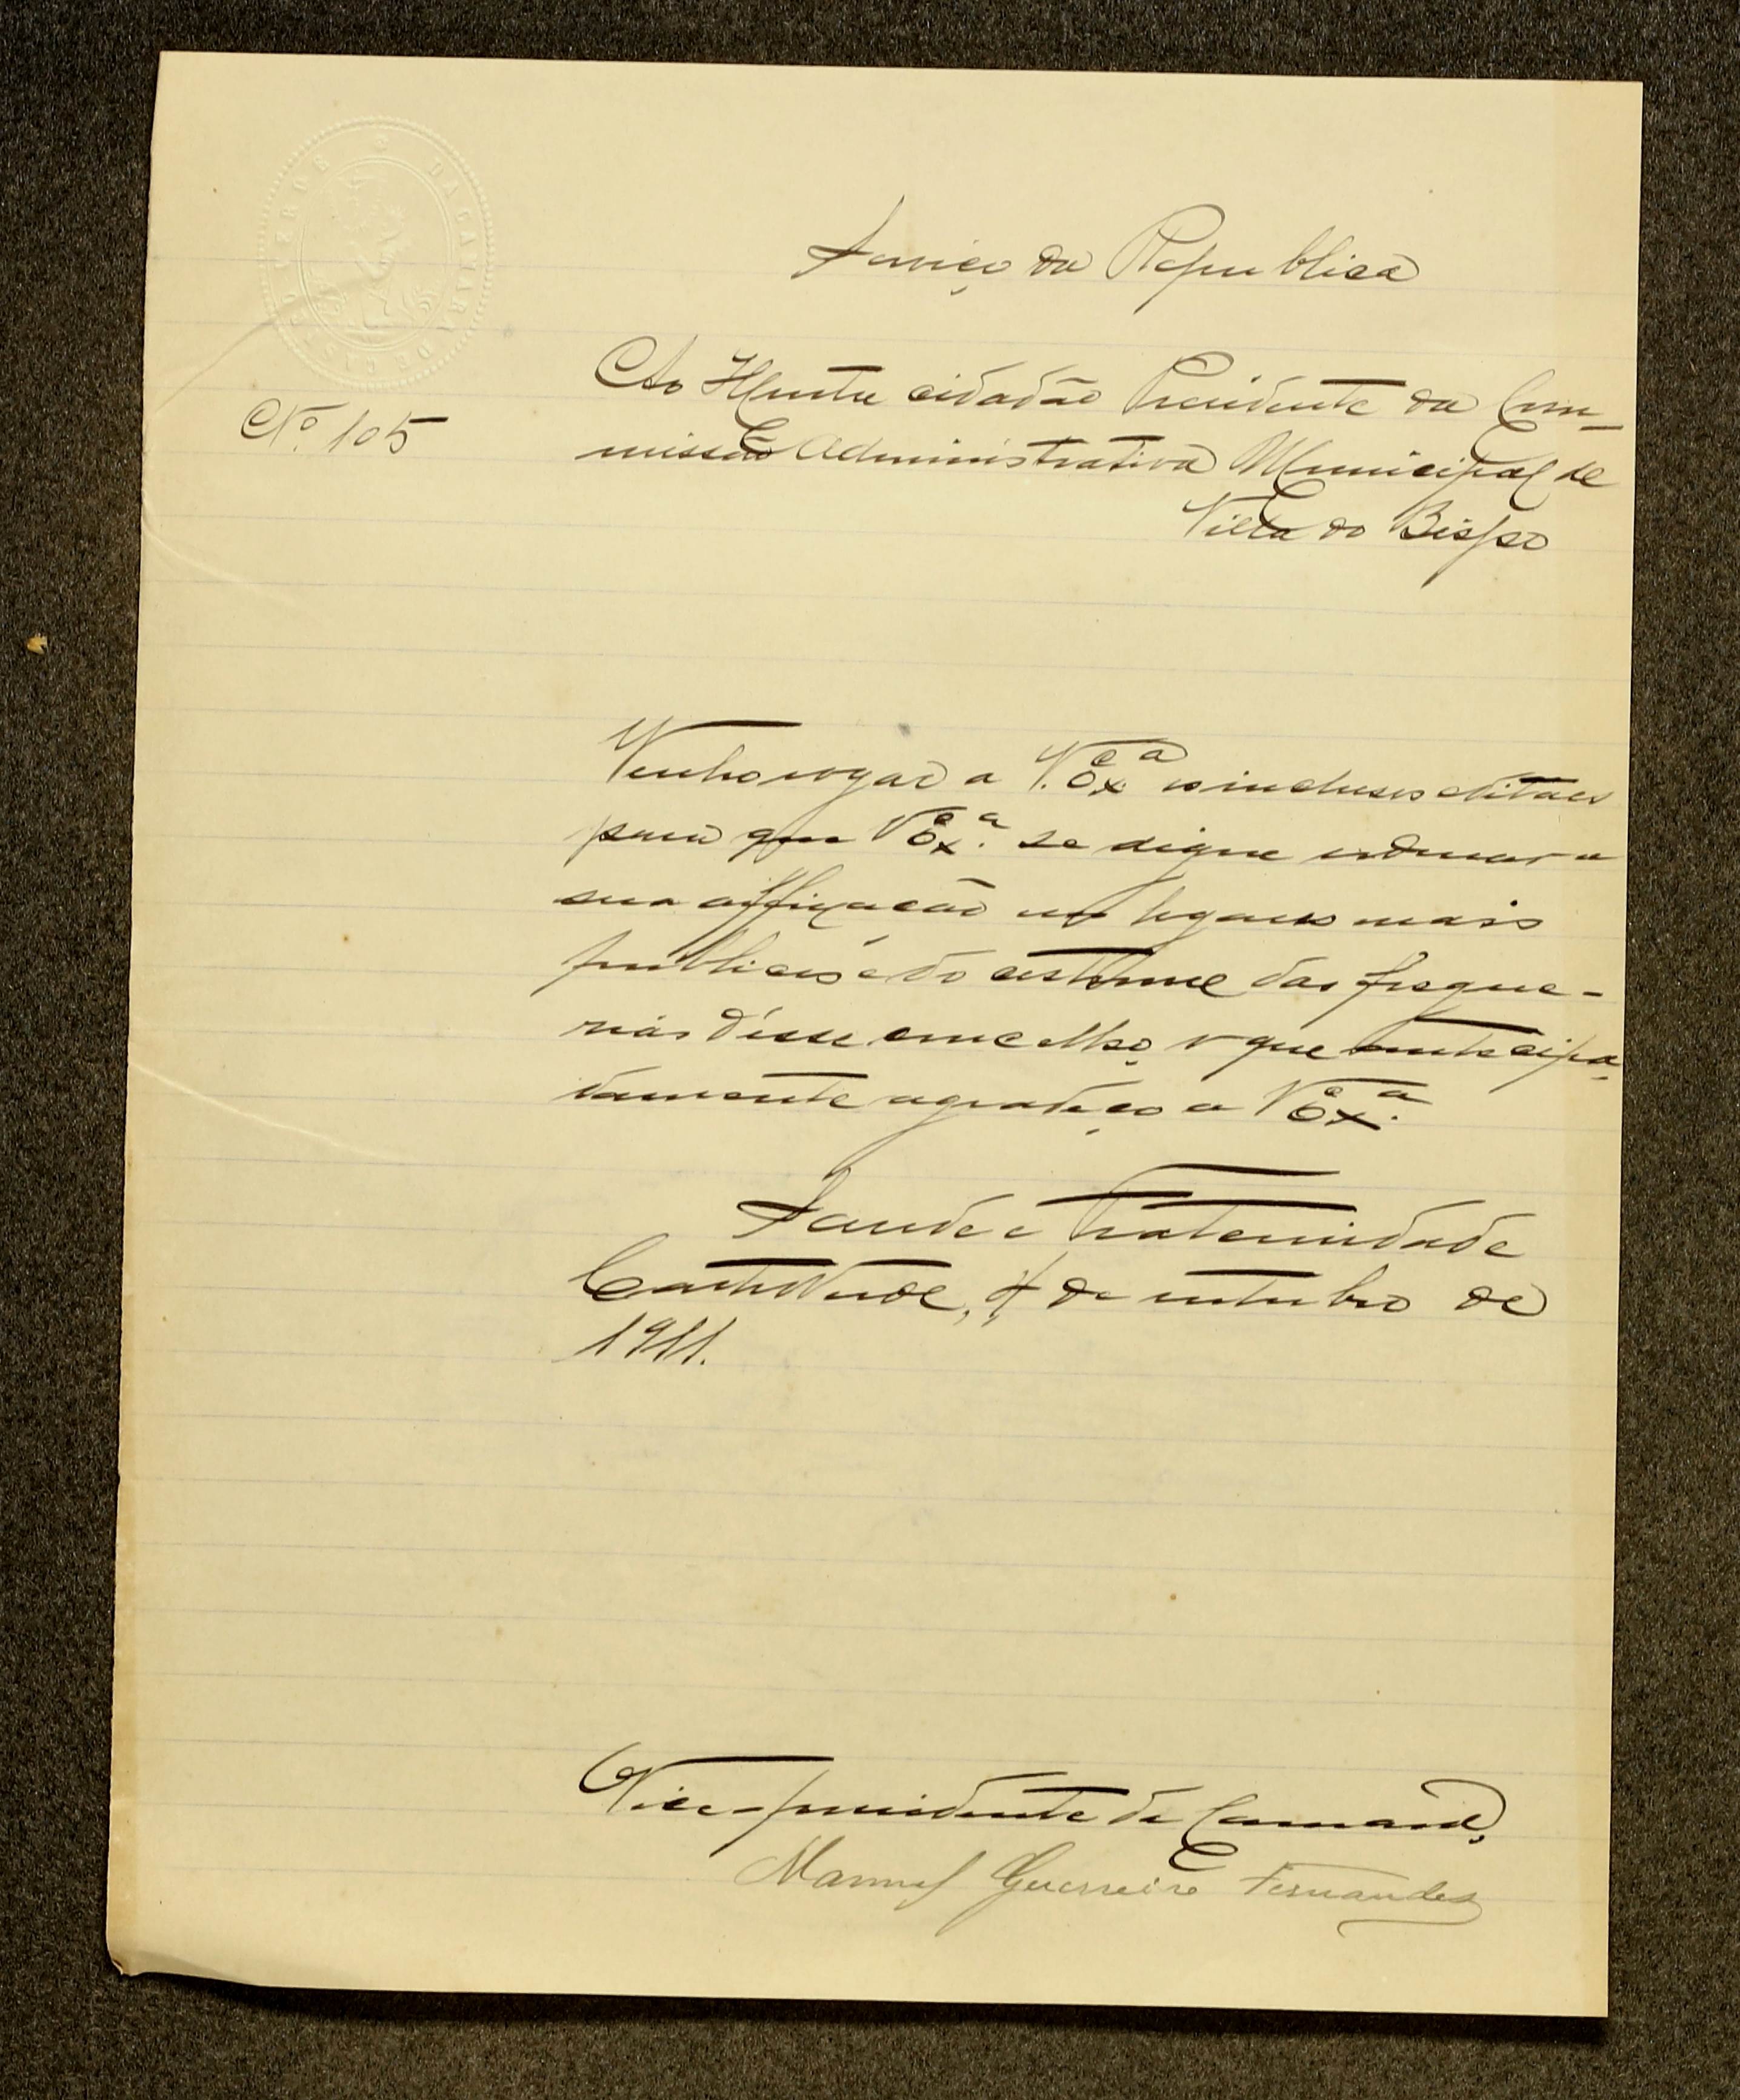 DA CAMARA DE CASTRO VERDE
Serviço da Republica
Nº 105
Ao Illustre cidadão Presidente da Com-
missão Administrativa Municipal de
Villa do Bispo
Venho rogar a V. Exª os inclusos editaes
para que V Exª se digne ordenar a
sua affixação nos logares mais
publicos e do costume das fregue-
sias d'esse concelho, o que antecipa-
damente agradeço a V Exª.
Saude e Fraternidade
Castro Verde, 4 de outubro de
1911.
O Vice-presidente da Camara,
Manuel Guerreiro Fernandes